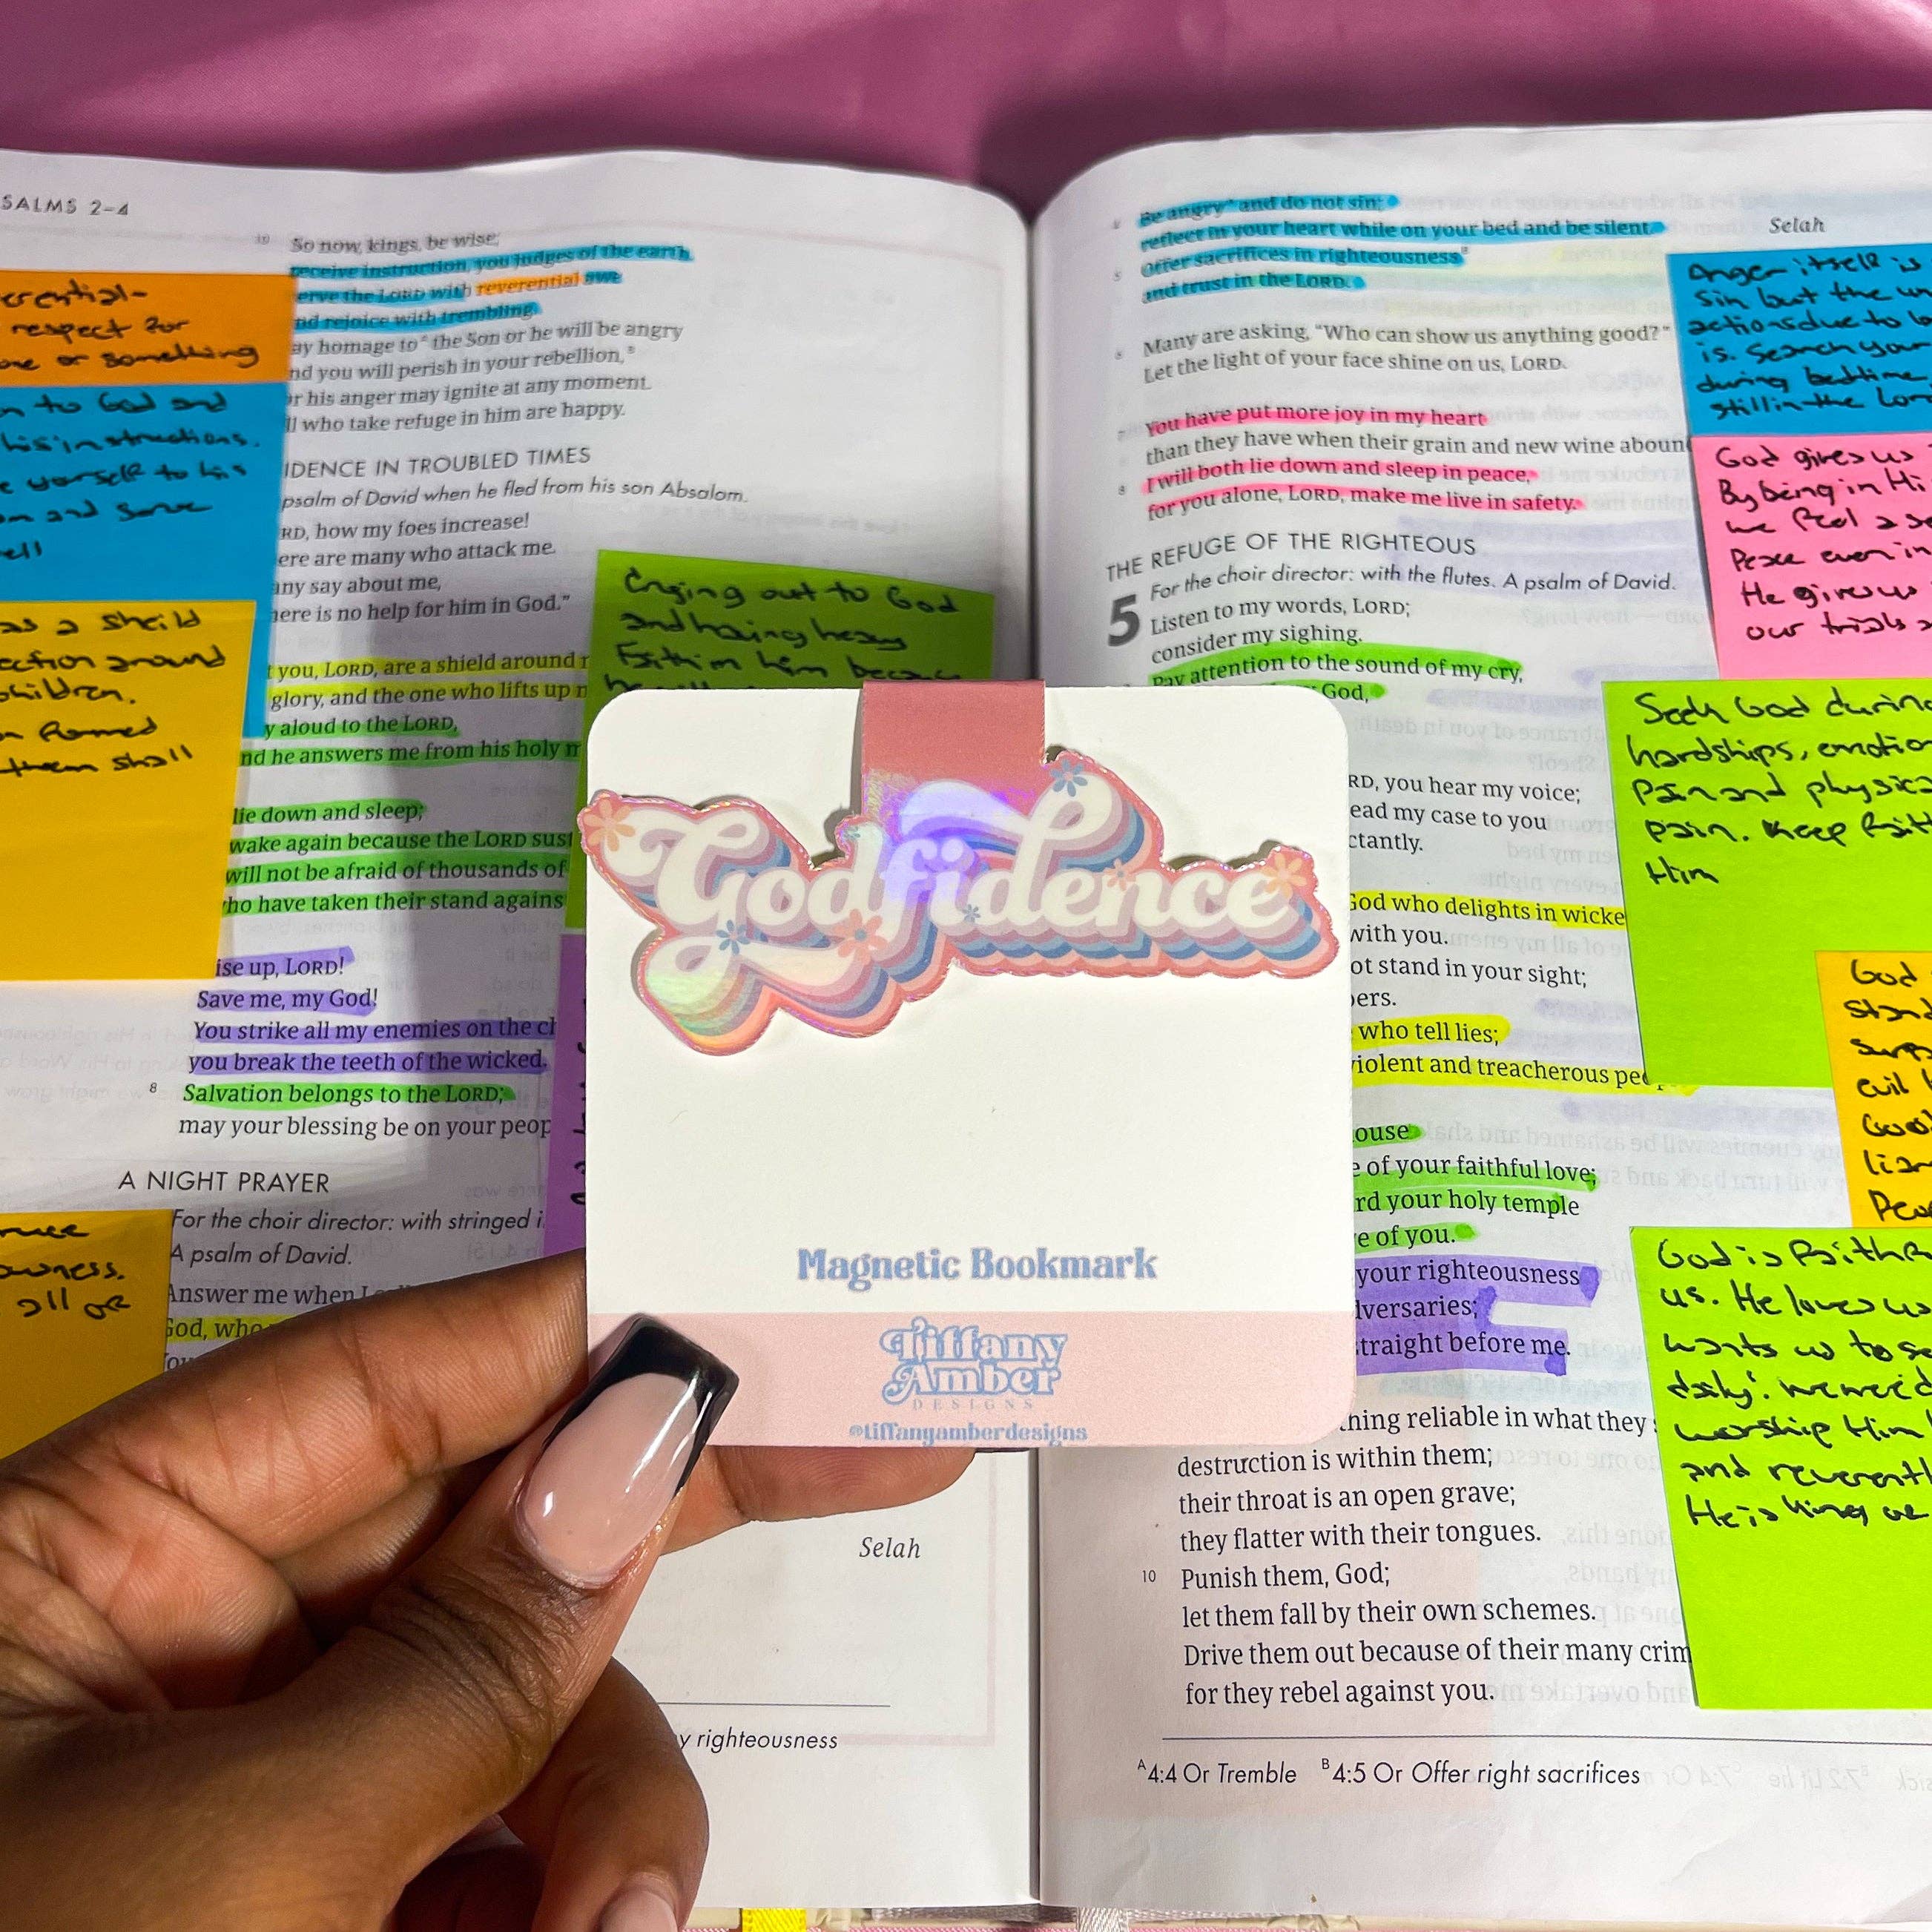 SALMS 2–4
10 So now, kings, be wise;
receive instruction, you judges of the earth.
erve the LORD with reverential awe
nd rejoice with trembling.
ay homage to the Son or he will be angry
nd you will perish in your rebellion,
r his anger may ignite at any moment.
ll who take refuge in him are happy.
IDENCE IN TROUBLED TIMES
psalm of David when he fled from his son Absalom.
RD, how my foes increase!
ere are many who attack me.
any say about me,
here is no help for him in God.”
t you, LORD, are a shield around
glory, and the one who lifts up
y aloud to the LORD,
nd he answers me from his holy
lie down and sleep;
wake again because the LORD sust
will not be afraid of thousands of
ho have taken their stand agains
ise up, LORD!
Save me, my God!
You strike all my enemies on the
you break the teeth of the wicked.
8 Salvation belongs to the LORD;
may your blessing be on your peop
A NIGHT PRAYER
For the choir director: with stringed
A psalm of David.
Answer me when I
God, who
Selah
y righteousness
erential-
respect for
one or something
n to God and
his instructions.
yourself to his
and serve
ell
as a sheild
ection around
children.
formed
them shall
all of
Crying out to God
and having heavy
Faith in him because
Godfidence
Magnetic Bookmark
Tiffany
Amber
DESIGNS
@tiffanyamberdesigns
Be angry and do not sin;
reflect in your heart while on your bed and be silent.
Selah
5 Offer sacrifices in righteousness
and trust in the LORD.
6 Many are asking, “Who can show us anything good?”
Let the light of your face shine on us, LORD.
7 You have put more joy in my heart
than they have when their grain and new wine aboun
8 I will both lie down and sleep in peace,
for you alone, LORD, make me live in safety.
THE REFUGE OF THE RIGHTEOUS
For the choir director: with the flutes. A psalm of David.
5 Listen to my words, LORD;
consider my sighing.
Pay attention to the sound of my cry,
God,
RD, you hear my voice;
ead my case to you
ctantly.
God who delights in wicke
with you.
ot stand in your sight;
ers.
who tell lies;
violent and treacherous peo
ouse
e of your faithful love;
rd your holy temple
e of you.
your righteousness
dversaries;
traight before me.
hing reliable in what they
destruction is within them;
their throat is an open grave;
they flatter with their tongues.
10 Punish them, God;
let them fall by their own schemes.
Drive them out because of their many crim
for they rebel against you.
A 4:4 Or Tremble B 4:5 Or Offer right sacrifices
Anger itself is
Sin but the
actions due to
is. Search your
during bedtime
still in the Lord
God gives us
By being in Hi
we feel a se
Peace even in
He gives us
our trials
Seek God during
hardships, emotion
Pain and physica
pain. Keep Faith
Him
God
stand
evil
Peo
God is Faithf
us. He loves us
wants us to se
daily.
worship Him
and reverentl
He is King